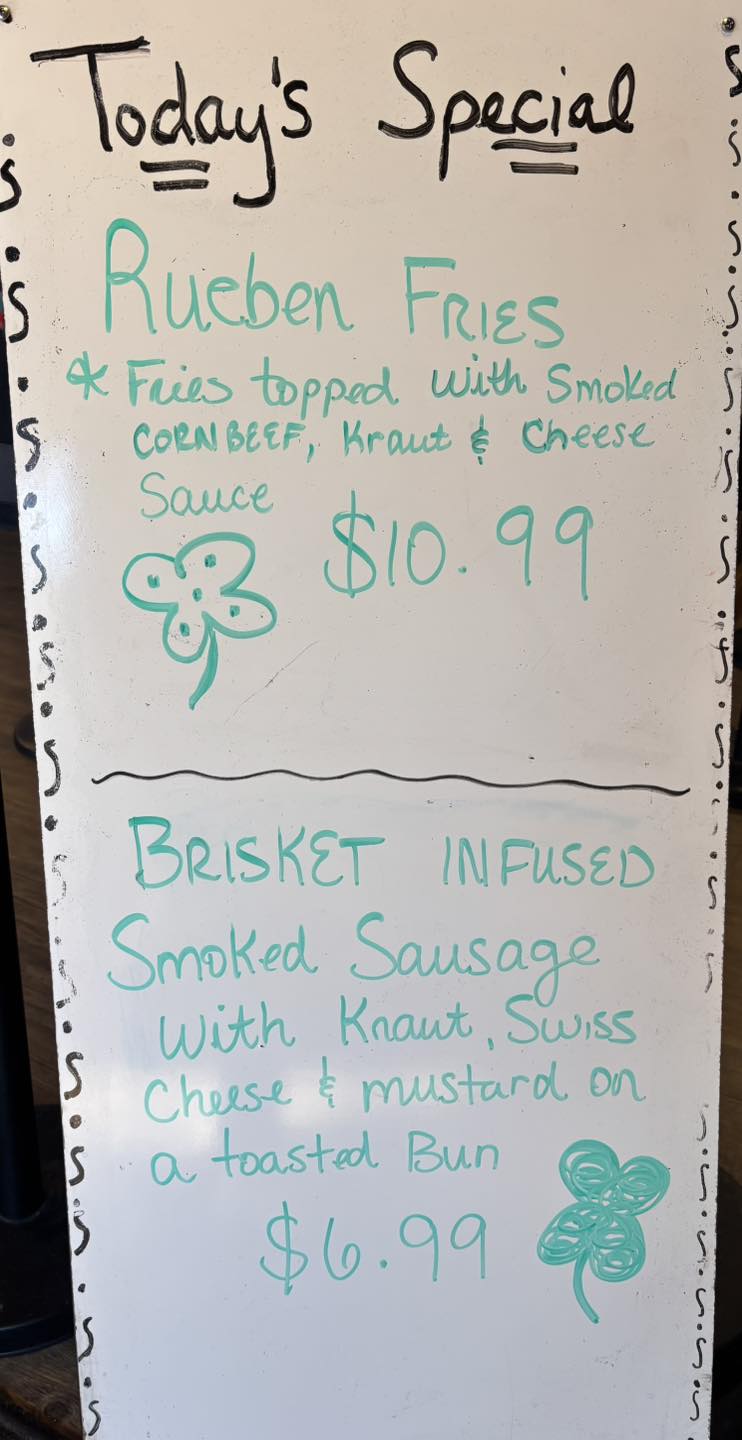 Today's Special
Rueben FRIES
* Fries topped with Smoked
CORNBEEF, Kraut & Cheese
Sauce
$10.99
BRISKET INFUSED
Smoked Sausage
with Kraut, Swiss
Cheese & mustard on
a toasted Bun
$6.99